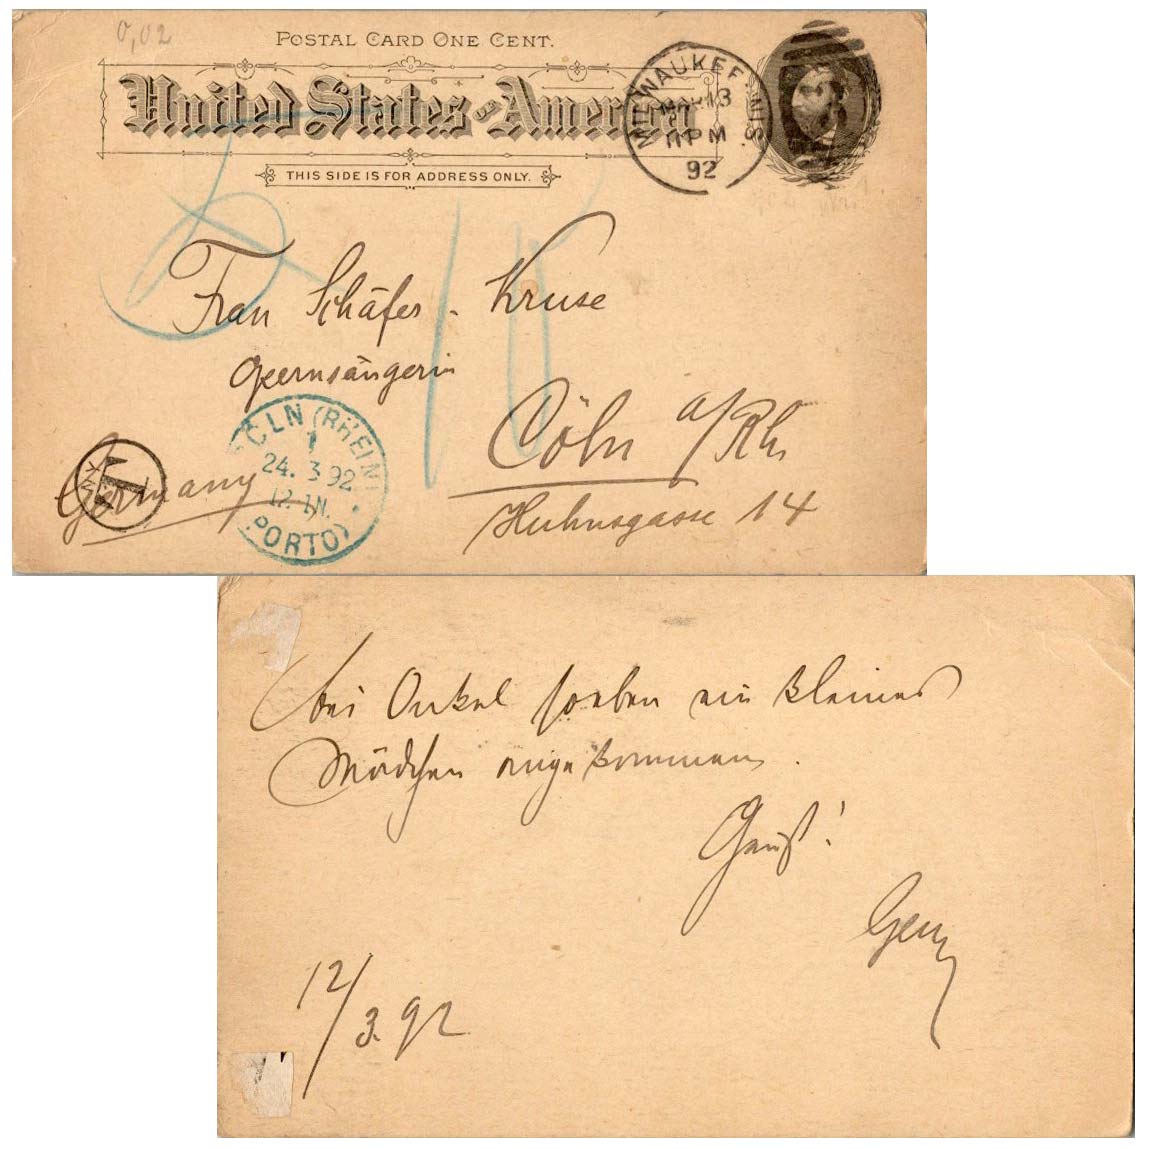 0,02
POSTAL CARD ONE CENT.
United States of America
THIS SIDE IS FOR ADDRESS ONLY.
MILWAUKEE, WIS.
MAR 13
11 PM
92
Frau Schäfer - Kruse
Opernsängerin
Cöln a/Rh
Huhnsgasse 14
Germany
T
CÖLN (RHEIN)
1
24. 3 92
12-1N.
(PORTO)
10
bei Onkel soeben ein kleines
Mädchen angekommen.
12/3.92